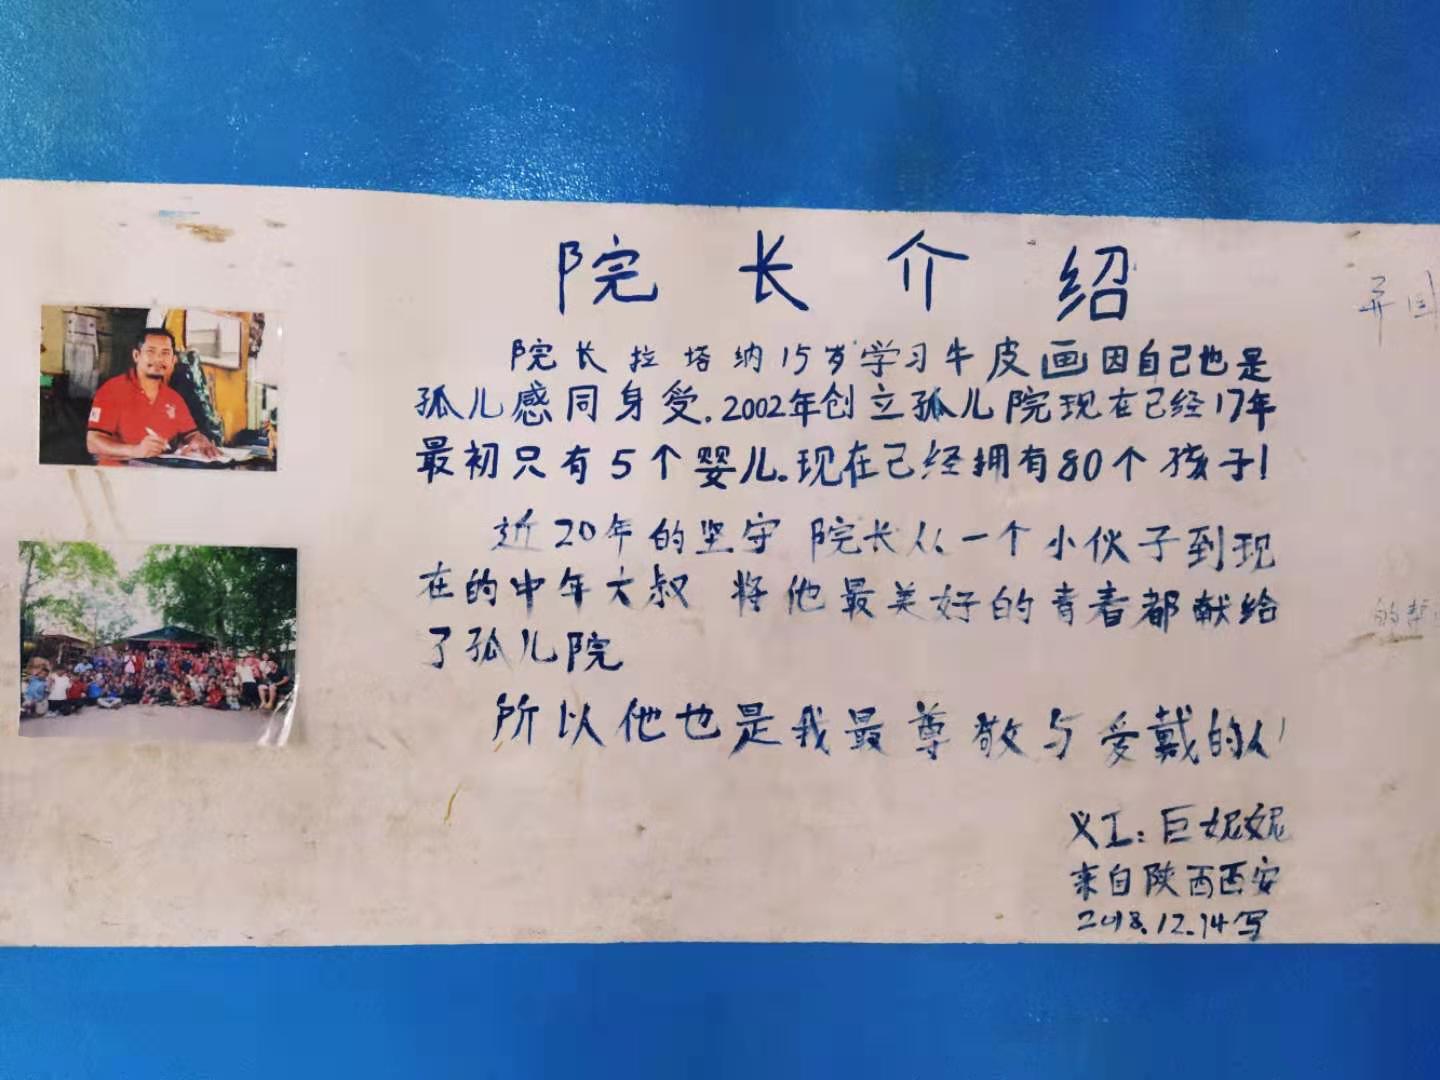 院长介绍
院长拉塔纳15岁学习牛皮画因自己也是
孤儿感同身受.2002年创立孤儿院现在已经17年
最初只有5个婴儿.现在已经拥有80个孩子!
近20年的坚守 院长从一个小伙子到现
在的中年大叔 将他最美好的青春都献给
了孤儿院
所以他也是我最尊敬与爱戴的人!
义工:巨妮妮
来自陕西西安
2018.12.14写
异国
的帮